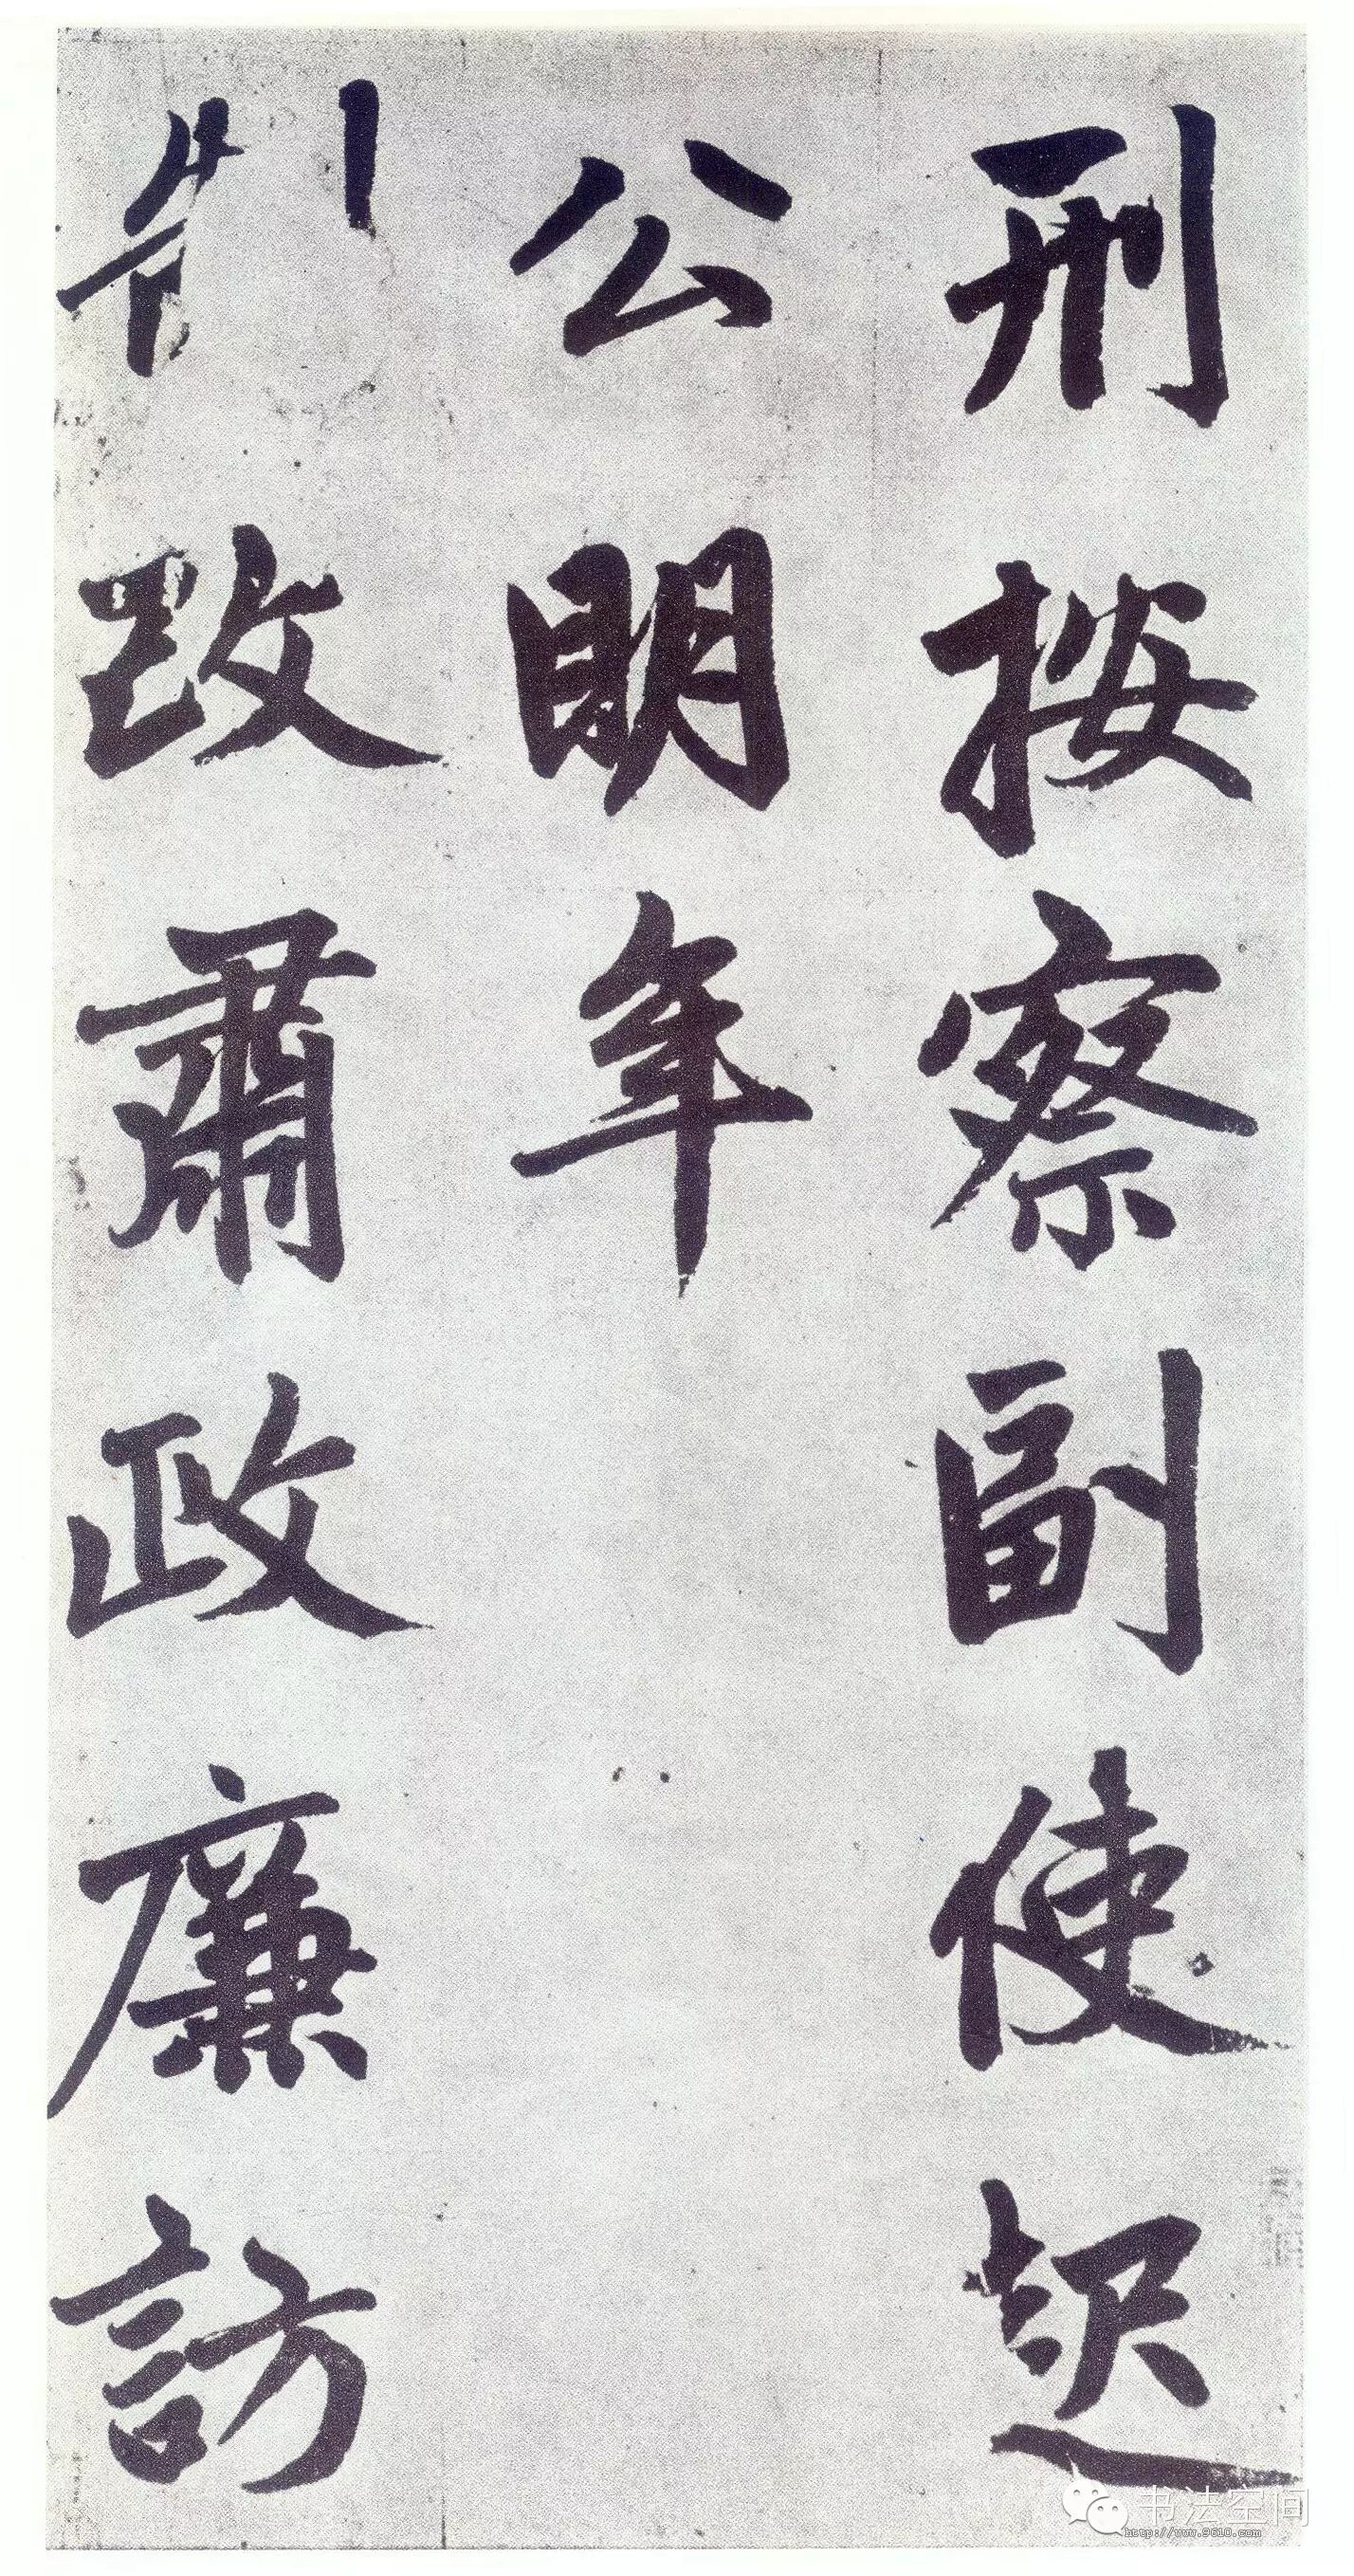 刑按察副使起
公明年
制改肅政廉訪
书法空间
http://www.9610.com